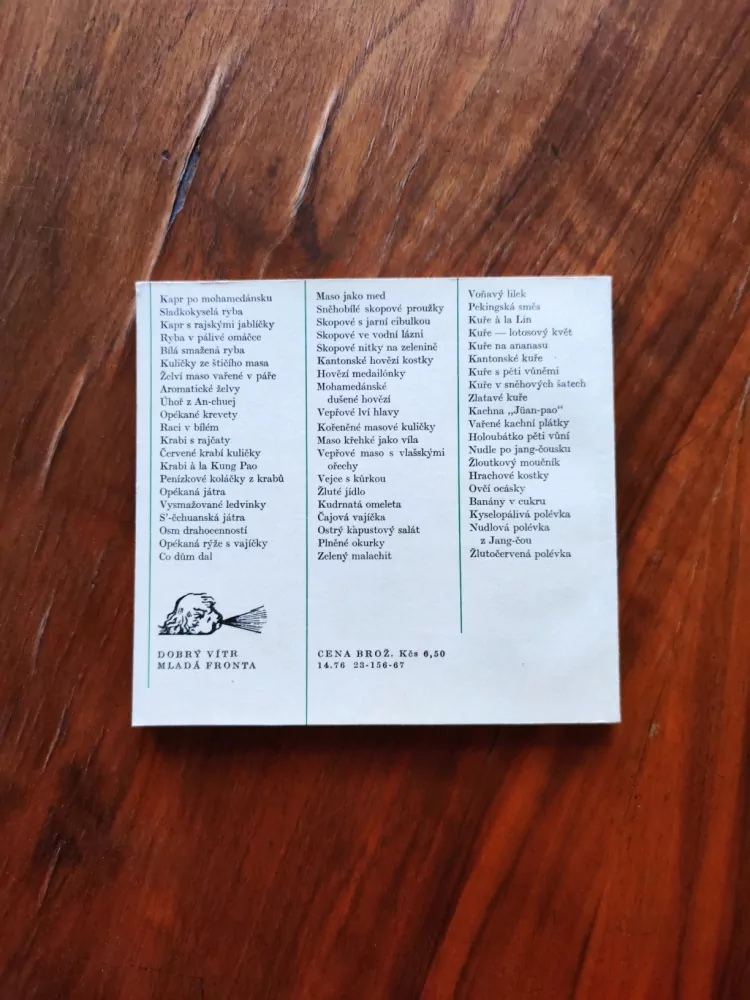 Kapr po mohamedánsku
Sladkokyselá ryba
Kapr s rajskými jablíčky
Ryba v pálivé omáčce
Bílá smažená ryba
Kuličky ze štičího masa
Želví maso vařené v páře
Aromatické želvy
Úhoř z An-chuej
Opékané krevety
Raci v bílém
Krabi s rajčaty
Červené krabí kuličky
Krabi à la Kung Pao
Penízkové koláčky z krabů
Opékaná játra
Vysmažované ledvinky
S'-čchuanská játra
Osm drahocenností
Opékaná rýže s vajíčky
Co dům dal
DOBRÝ VÍTR
MLADÁ FRONTA
Maso jako med
Sněhobílé skopové proužky
Skopové s jarní cibulkou
Skopové ve vodní lázni
Skopové nitky na zelenině
Kantonské hovězí kostky
Hovězí medailónky
Mohamedánské
dušené hovězí
Vepřové lví hlavy
Kořeněné masové kuličky
Maso křehké jako víla
Vepřové maso s vlašskými
ořechy
Vejce s kůrkou
Žluté jídlo
Kudrnatá omeleta
Čajová vajíčka
Ostrý kapustový salát
Plněné okurky
Zelený malachit
CENA BROŽ. Kčs 6,50
14.76 23-156-67
Voňavý lilek
Pekingská směs
Kuře à la Lin
Kuře — lotosový květ
Kuře na ananasu
Kantonské kuře
Kuře s pěti vůněmi
Kuře v sněhových šatech
Zlatavé kuře
Kachna „Jüan-pao"
Vařené kachní plátky
Holoubátko pěti vůní
Nudle po jang-čousku
Žloutkový moučník
Hrachové kostky
Ovčí ocásky
Banány v cukru
Kyselopálivá polévka
Nudlová polévka
z Jang-čou
Žlutočervená polévka